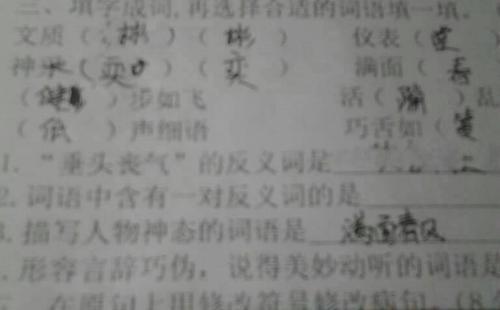 三、填字成词,再选择合适的词语填一填。
文质(彬)(彬) 仪表(堂
神采(奕)(奕) 满面(春
(健)步如飞 活(蹦)乱
(低)声细语 巧舌如(簧
1. “垂头丧气”的反义词是
2. 词语中含有一对反义词的是
3. 描写人物神态的词语是 满面春风
. 形容言辞巧伪,说得美妙动听的词语是
在原句上用修改符号修改病句。(8